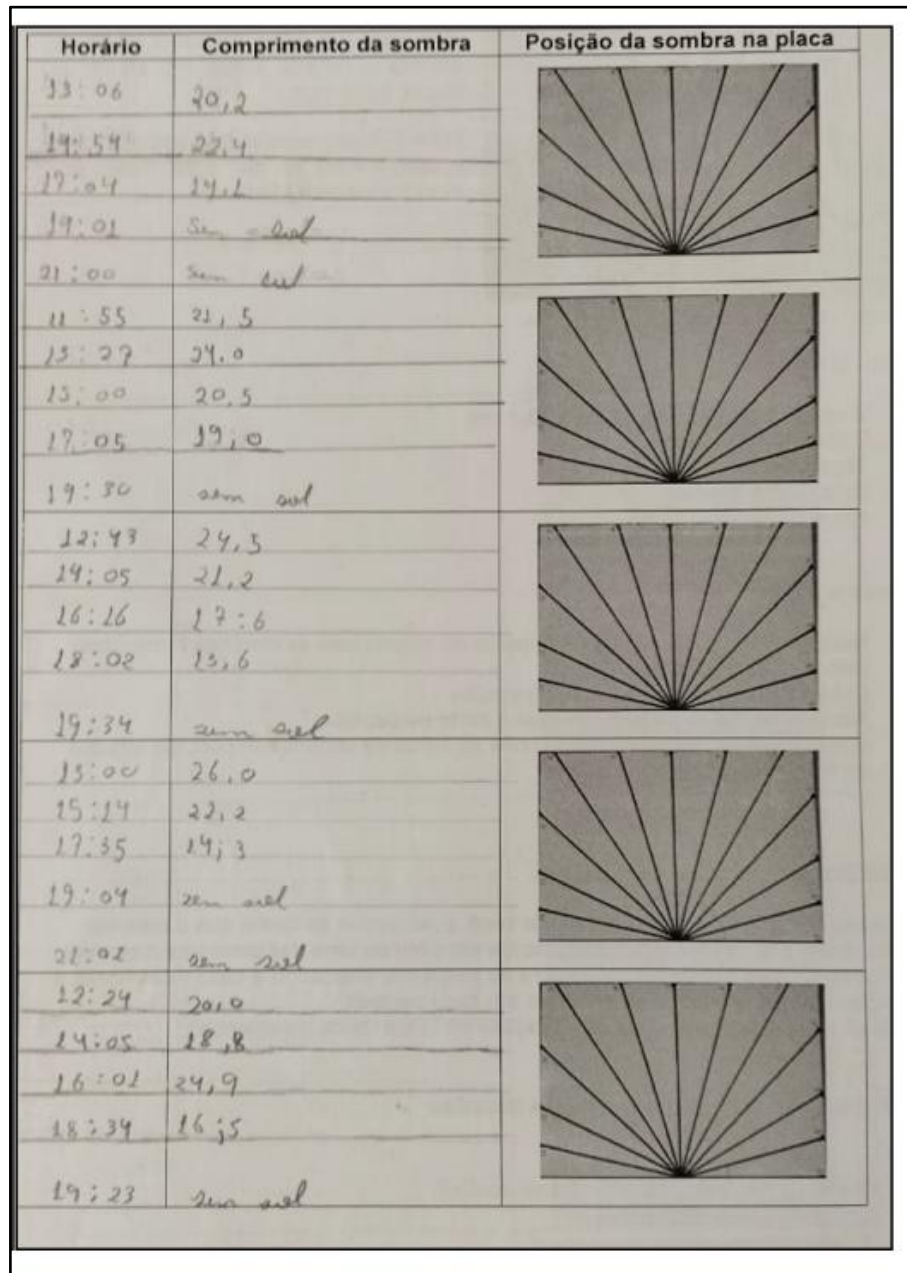 Horário Comprimento da sombra Posição da sombra na placa
13:06 20,2
14:54 22,4
17:04 14,1
19:01 Sem sol
21:00 Sem sol
11:55 21,5
13:27 24,0
15:00 20,5
17:05 19,0
19:30 sem sol
12:43 24,5
14:05 21,2
16:16 17:6
18:02 13,6
19:34 sem sol
13:00 26,0
15:14 22,2
17:35 14;3
19:04 sem sol
21:02 sem sol
12:24 20,0
14:05 18,8
16:01 24,9
18:34 16;5
19:23 sem sol